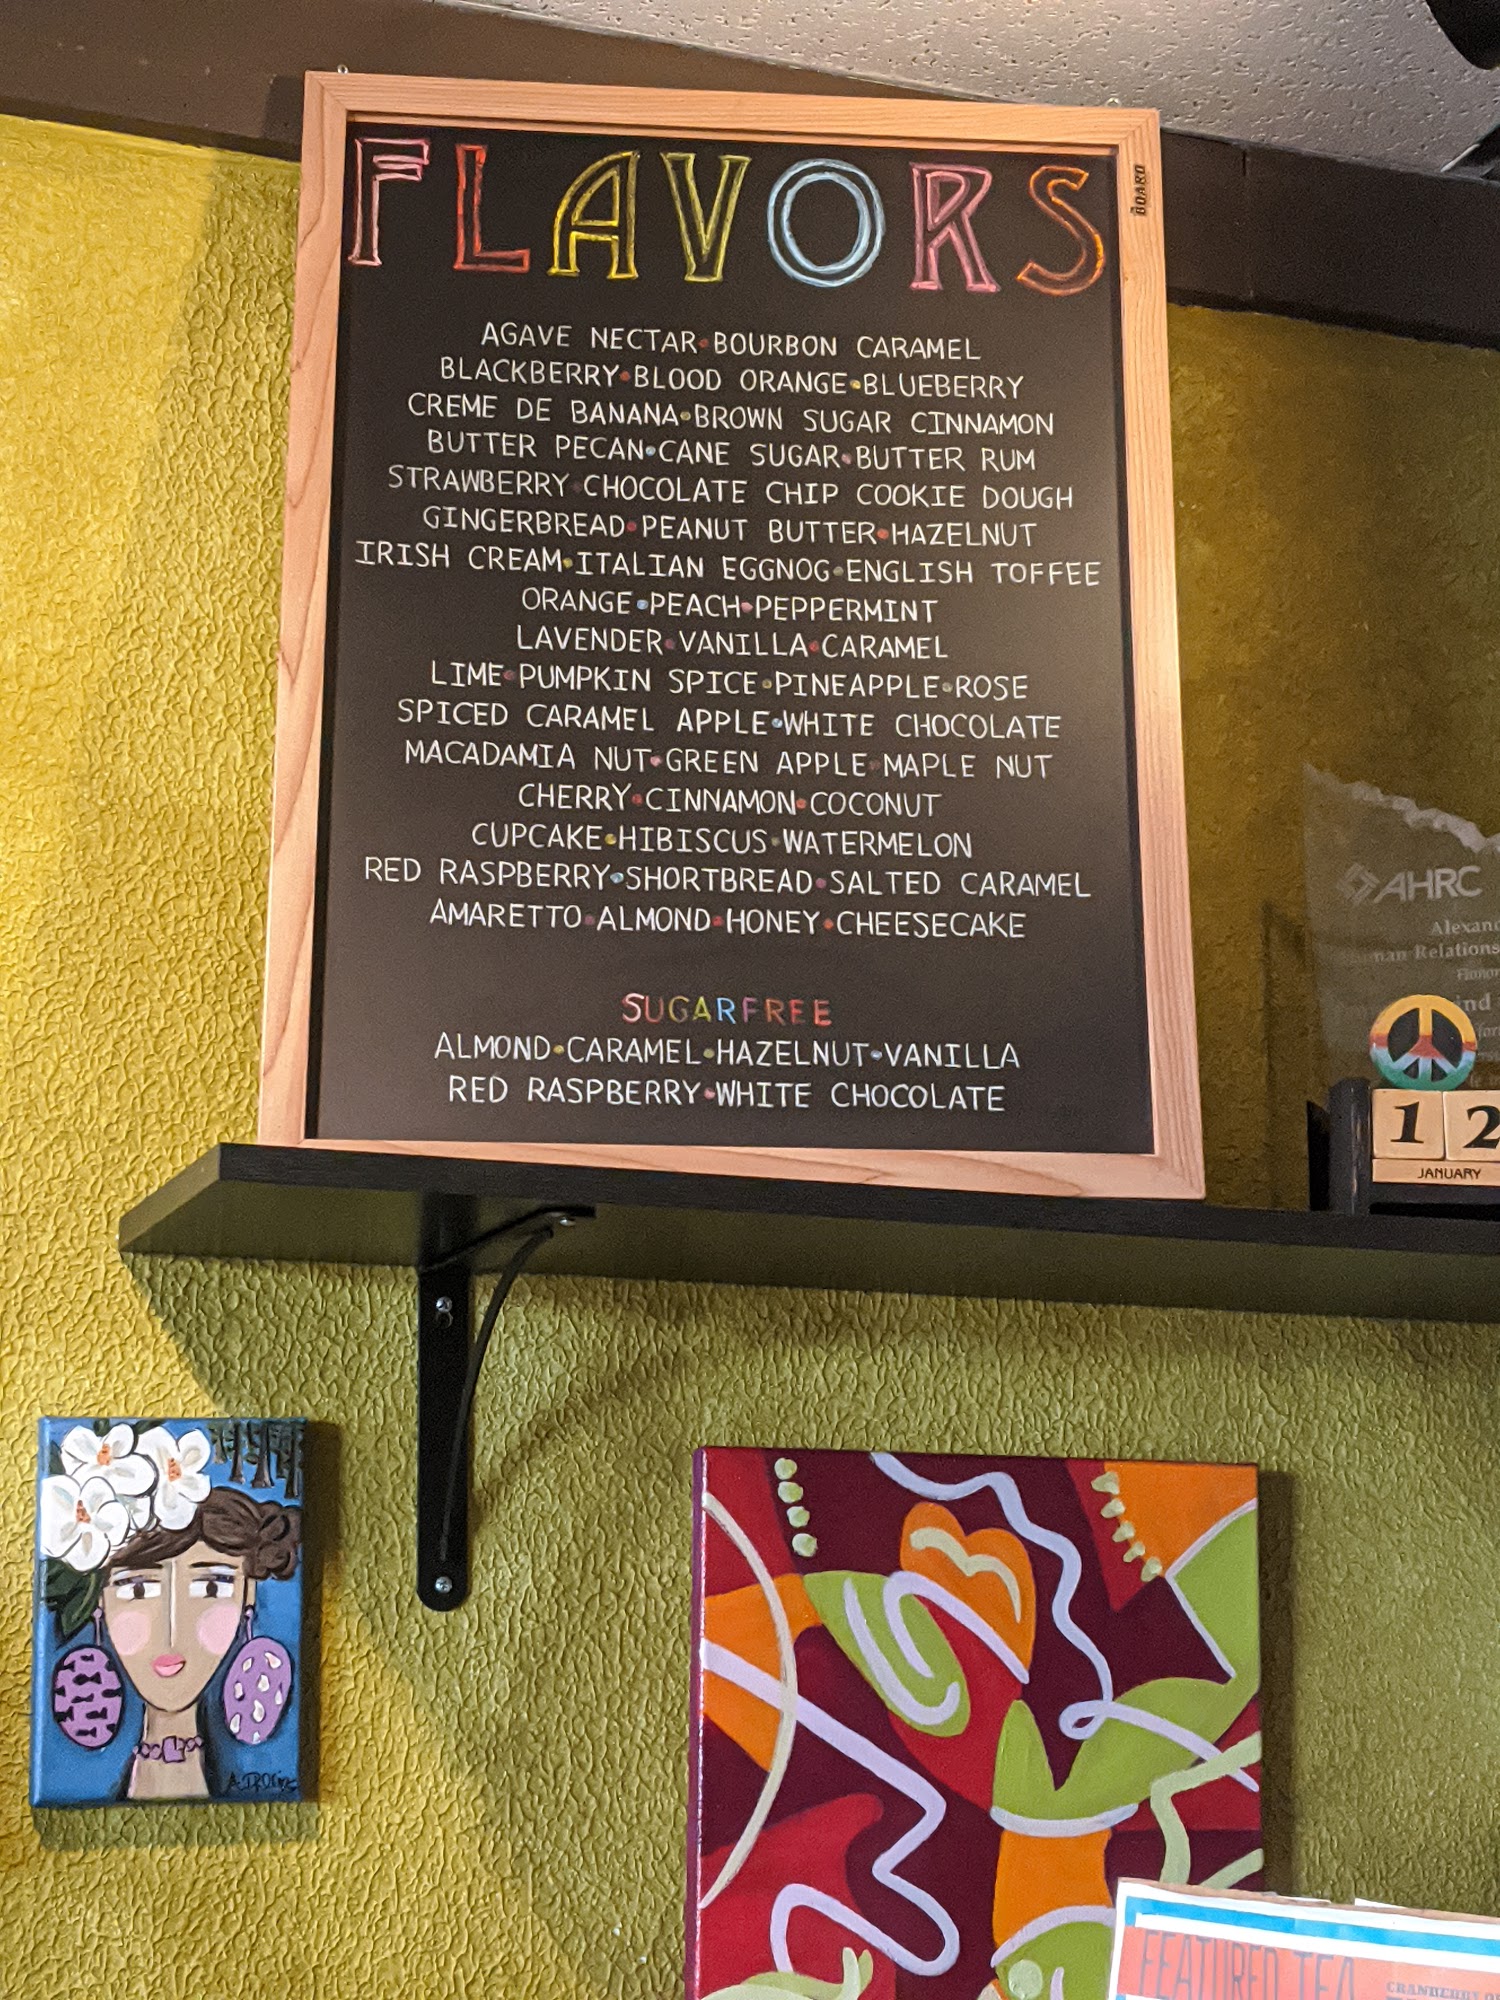 FLAVORS
BOARD
AGAVE NECTAR•BOURBON CARAMEL
BLACKBERRY•BLOOD ORANGE•BLUEBERRY
CREME DE BANANA•BROWN SUGAR CINNAMON
BUTTER PECAN•CANE SUGAR•BUTTER RUM
STRAWBERRY•CHOCOLATE CHIP COOKIE DOUGH
GINGERBREAD•PEANUT BUTTER•HAZELNUT
IRISH CREAM•ITALIAN EGGNOG•ENGLISH TOFFEE
ORANGE•PEACH•PEPPERMINT
LAVENDER•VANILLA•CARAMEL
LIME•PUMPKIN SPICE•PINEAPPLE•ROSE
SPICED CARAMEL APPLE•WHITE CHOCOLATE
MACADAMIA NUT•GREEN APPLE•MAPLE NUT
CHERRY•CINNAMON•COCONUT
CUPCAKE•HIBISCUS•WATERMELON
RED RASPBERRY•SHORTBREAD•SALTED CARAMEL
AMARETTO•ALMOND•HONEY•CHEESECAKE
SUGARFREE
ALMOND•CARAMEL•HAZELNUT•VANILLA
RED RASPBERRY•WHITE CHOCOLATE
AHRC
Relations
12
JANUARY
FEATURED TEA
CRANBERRY